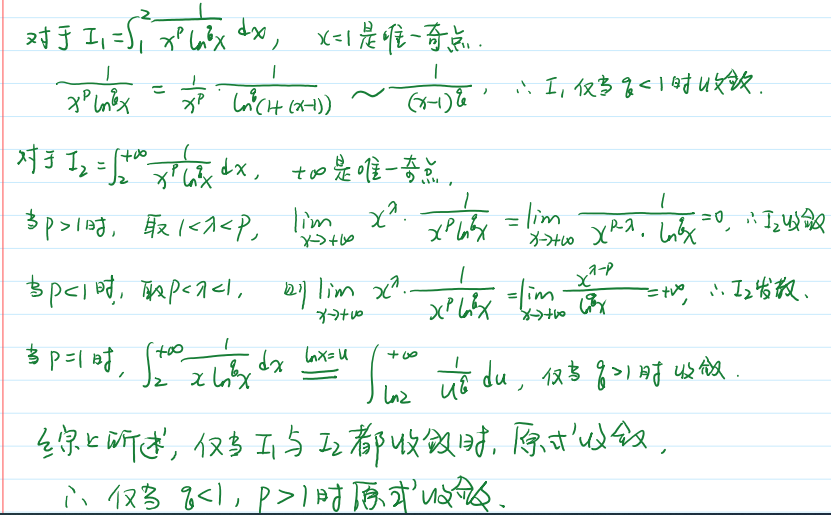 对于 I₁=∫₁² 1/(x^p ln^q x) dx, x=1是唯一奇点.
1/(x^p ln^q x) = 1/x^p · 1/(ln^q(1+(x-1))) ~ 1/(x-1)^q, ∴ I₁仅当q<1时收敛.
对于 I₂=∫₂^{+∞} 1/(x^p ln^q x) dx, +∞是唯一奇点,
当p>1时, 取1<λ<p, lim_{x→+∞} x^λ · 1/(x^p ln^q x) = lim_{x→+∞} 1/(x^{p-λ} · ln^q x) =0, ∴I₂收敛
当p<1时, 取p<λ<1, 则 lim_{x→+∞} x^λ · 1/(x^p ln^q x) = lim_{x→+∞} x^{λ-p}/(ln^q x) =+∞, ∴I₂发散.
当p=1时, ∫₂^{+∞} 1/(x ln^q x) dx ==(lnx=u)== ∫_{ln2}^{+∞} 1/u^q du, 仅当q>1时收敛.
综上所述, 仅当I₁与I₂都收敛时, 原式收敛,
∴ 仅当q<1, p>1时原式收敛.